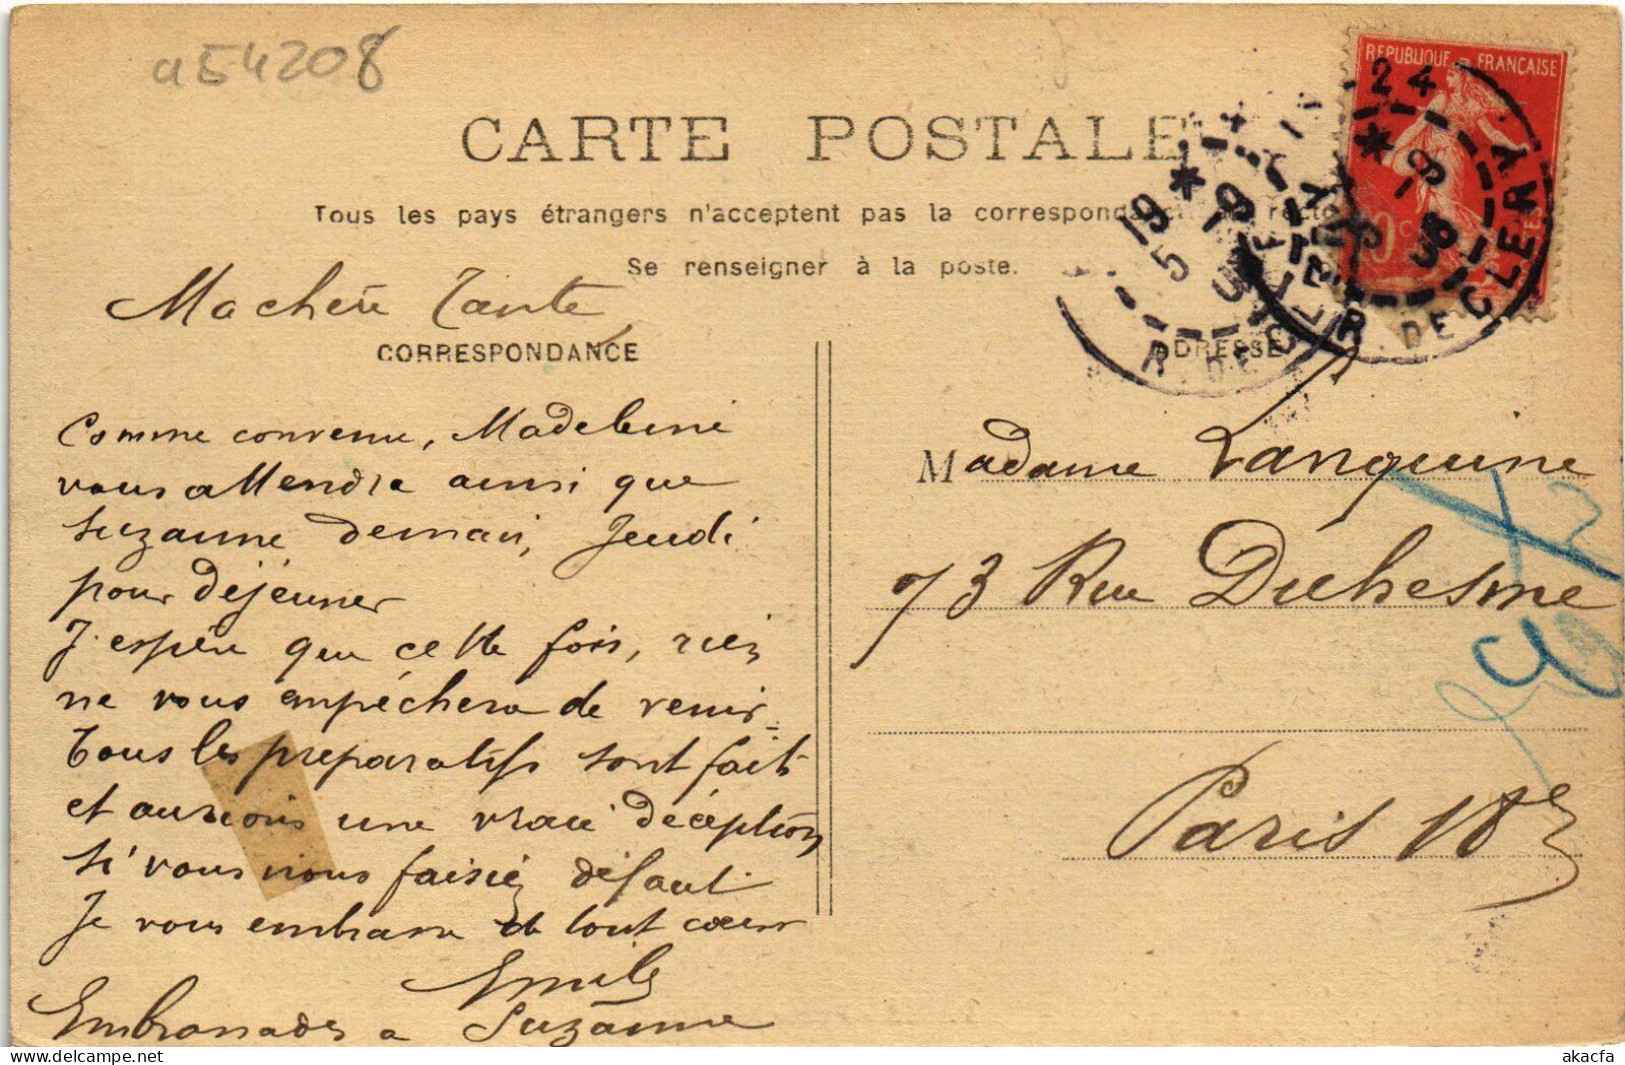 a54208
REPUBLIQUE FRANÇAISE
CARTE POSTALE
Tous les pays étrangers n'acceptent pas la correspondance recto
Se renseigner à la poste.
Ma chère Tante
CORRESPONDANCE
ADRESSE
R. DE CLERY
R. DE CLERY
Comme convenu, Madeleine
vous attendra ainsi que
Suzanne demain, Jeudi
pour déjeuner
J'espère que cette fois, rien
ne vous empêchera de venir.
Tous les préparatifs sont faits
et aurions une vraie déception
si vous nous faisiez défaut
Je vous embrasse de tout coeur
Emile
Embrassades a Suzanne
Madame Languine
73 Rue Duhesme
Paris 18e
akacfa